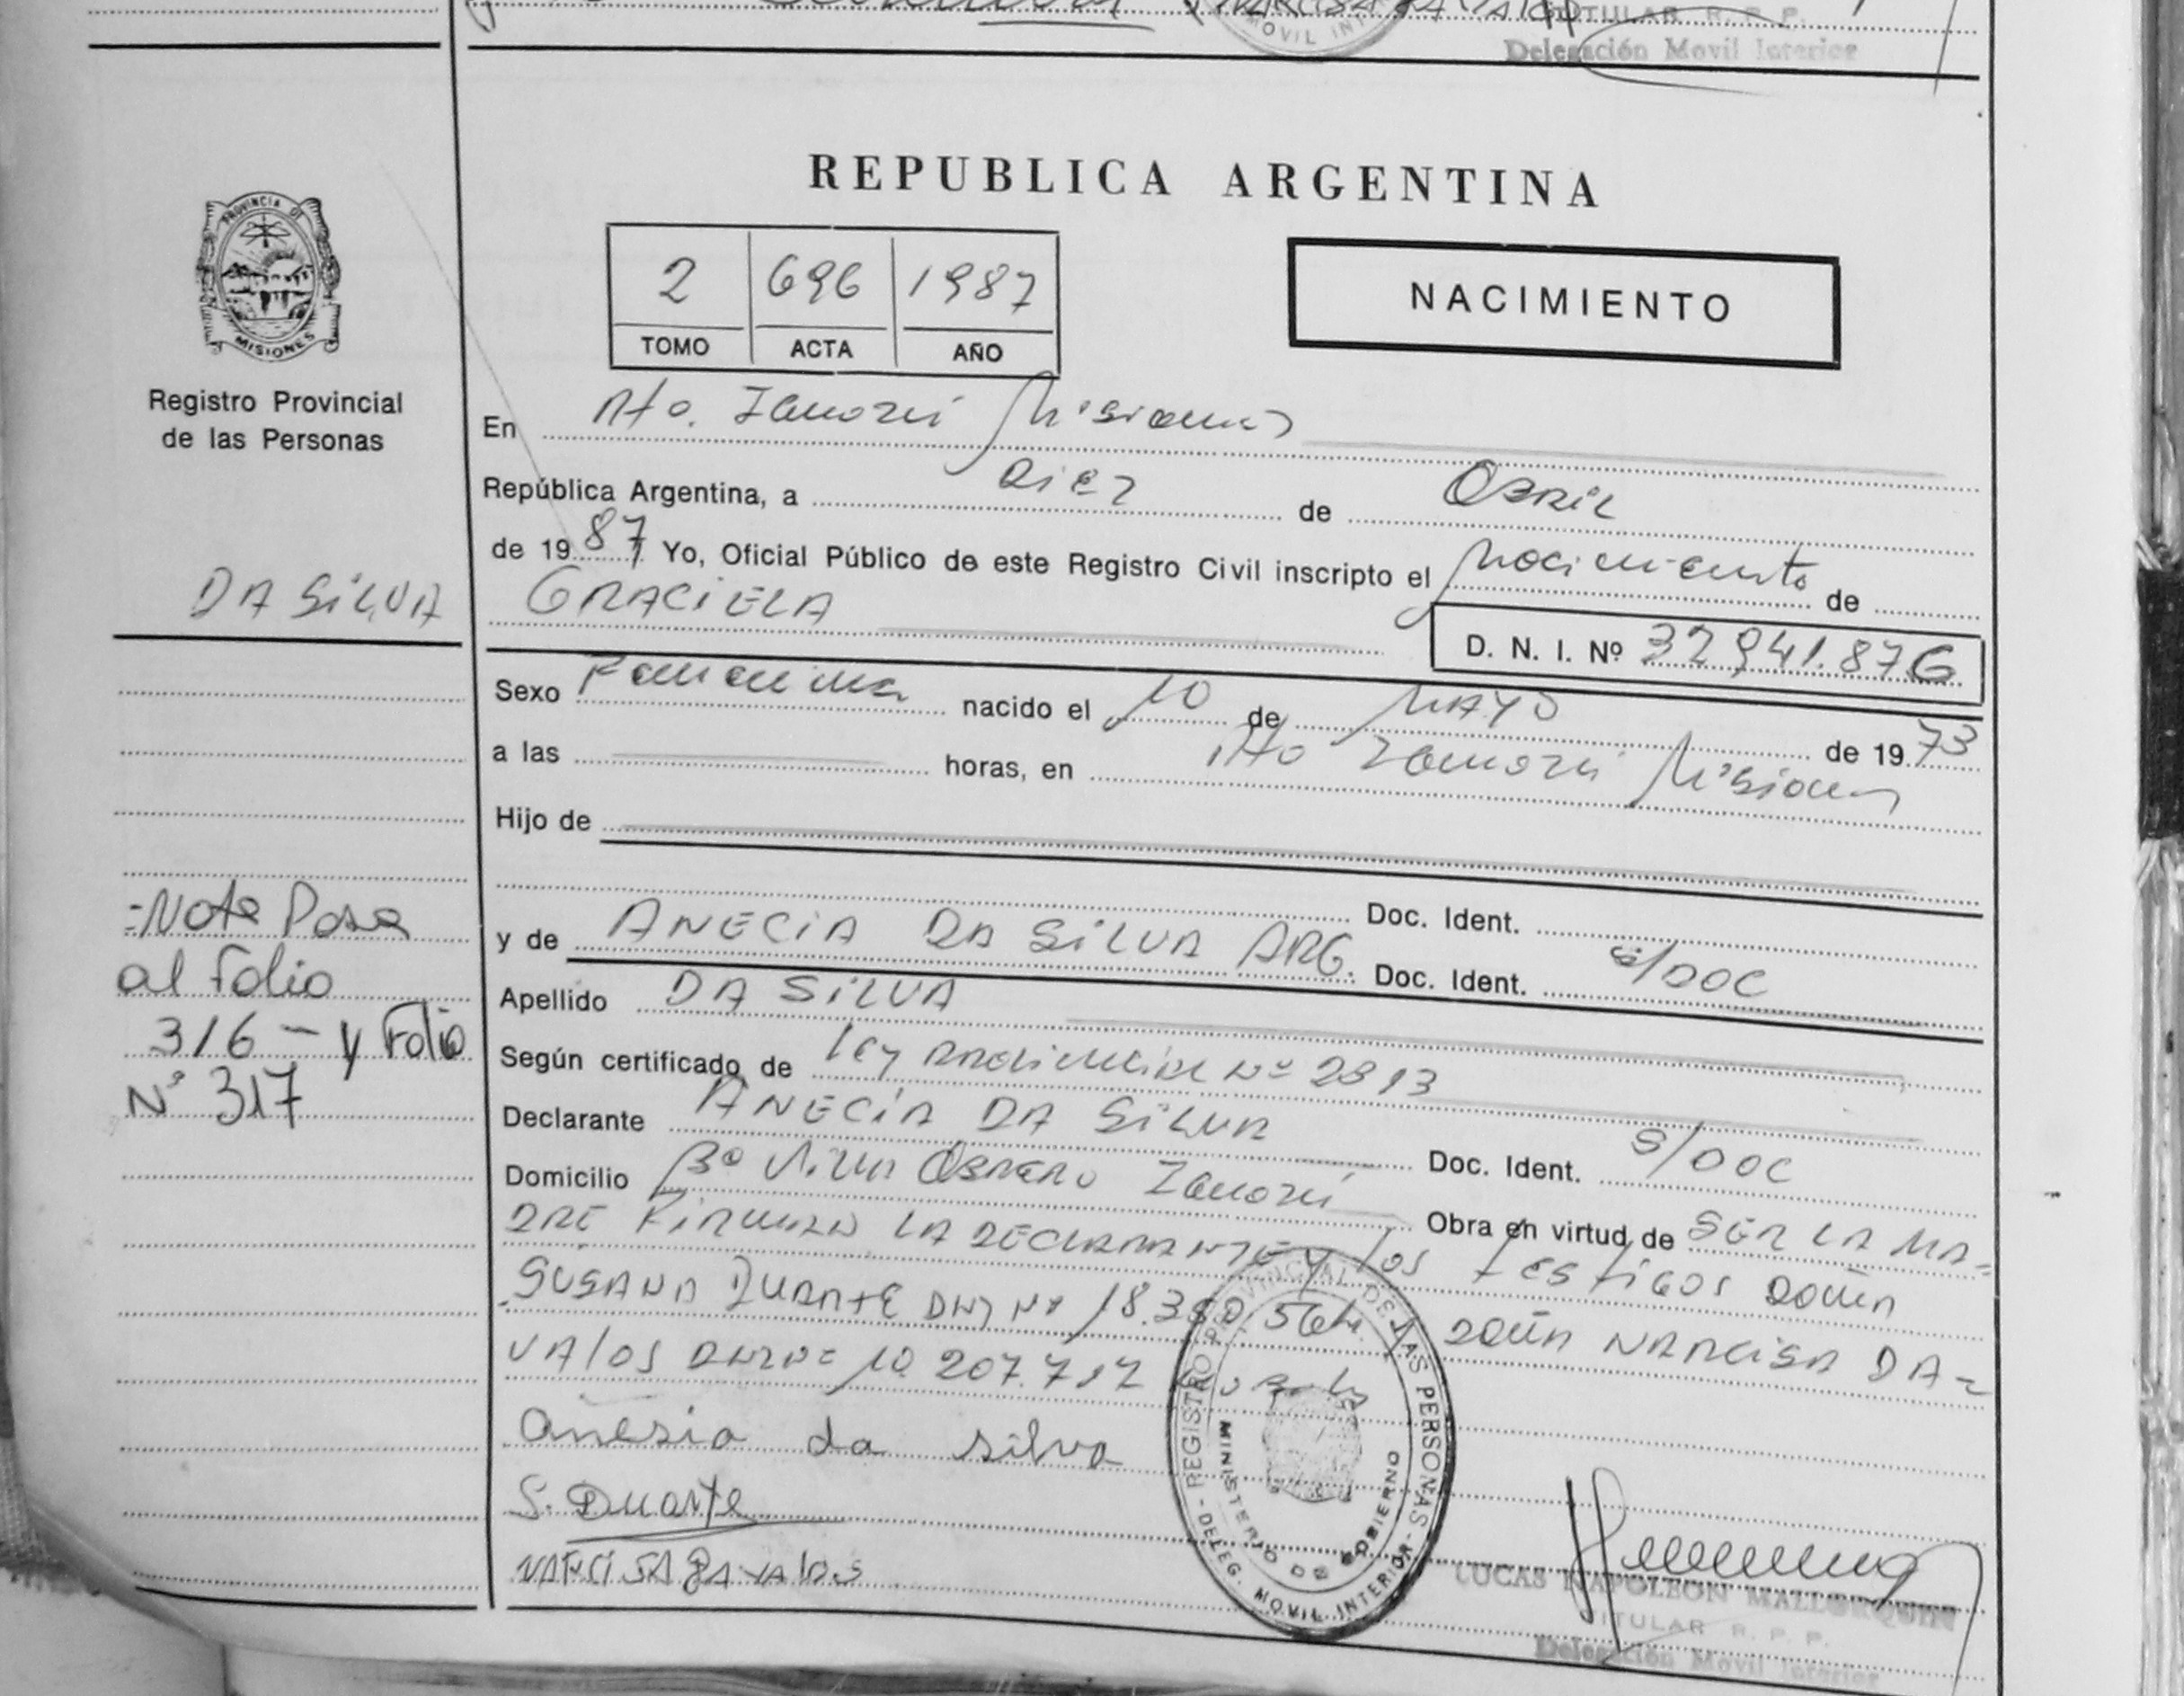 TITULAR R. P. P.
Delegación Movil Interior
REPUBLICA ARGENTINA
2 696 1987
TOMO ACTA AÑO
NACIMIENTO
PROVINCIA DE
MISIONES
Registro Provincial
de las Personas
En Pto. Iguazú Misiones
República Argentina, a Diez de Abril
de 1987 Yo, Oficial Público de este Registro Civil inscripto el Nacimiento de
DA SILVA
GRACIELA
D. N. I. Nº 32.941.876
Sexo Femenina nacido el 10 de MAYO de 1973
a las horas, en Pto Iguazú Misiones
Hijo de
Doc. Ident.
y de ANECIA DA SILVA ARG. Doc. Ident. S/DOC
Apellido DA SILVA
Según certificado de Ley Nº 2313
Declarante ANECIA DA SILVA Doc. Ident. S/DOC
Domicilio Bº Villa Obrera Iguazú Obra en virtud de SER LA MA=
DRE FIRMAN LA DECLARANTE y los testigos DOÑA
SUSANA DUARTE DNI Nº 18.3 DOÑA NARCISA DA=
VALOS DNI Nº 10.207.717
Anesia da silva
S. Duarte
NARCISA DAVALOS
-Nota Pasa
al Folio
316 - y Folio
Nº 317
REGISTRO PROVINCIAL DE LAS PERSONAS - DELEG. MOVIL INTERIOR -
MINISTERIO DE GOBIERNO
LUCAS NAPOLEON MALLORQUIN
TITULAR R. P. P.
Delegación Movil Interior